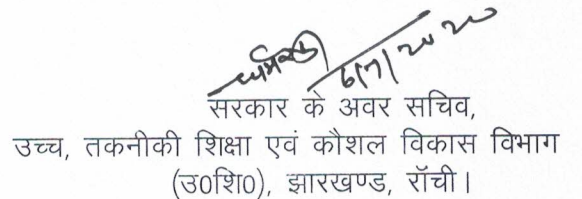 6/7/2020
सरकार के अवर सचिव,
उच्च, तकनीकी शिक्षा एवं कौशल विकास विभाग
(उ0शि0), झारखण्ड, राॅची।